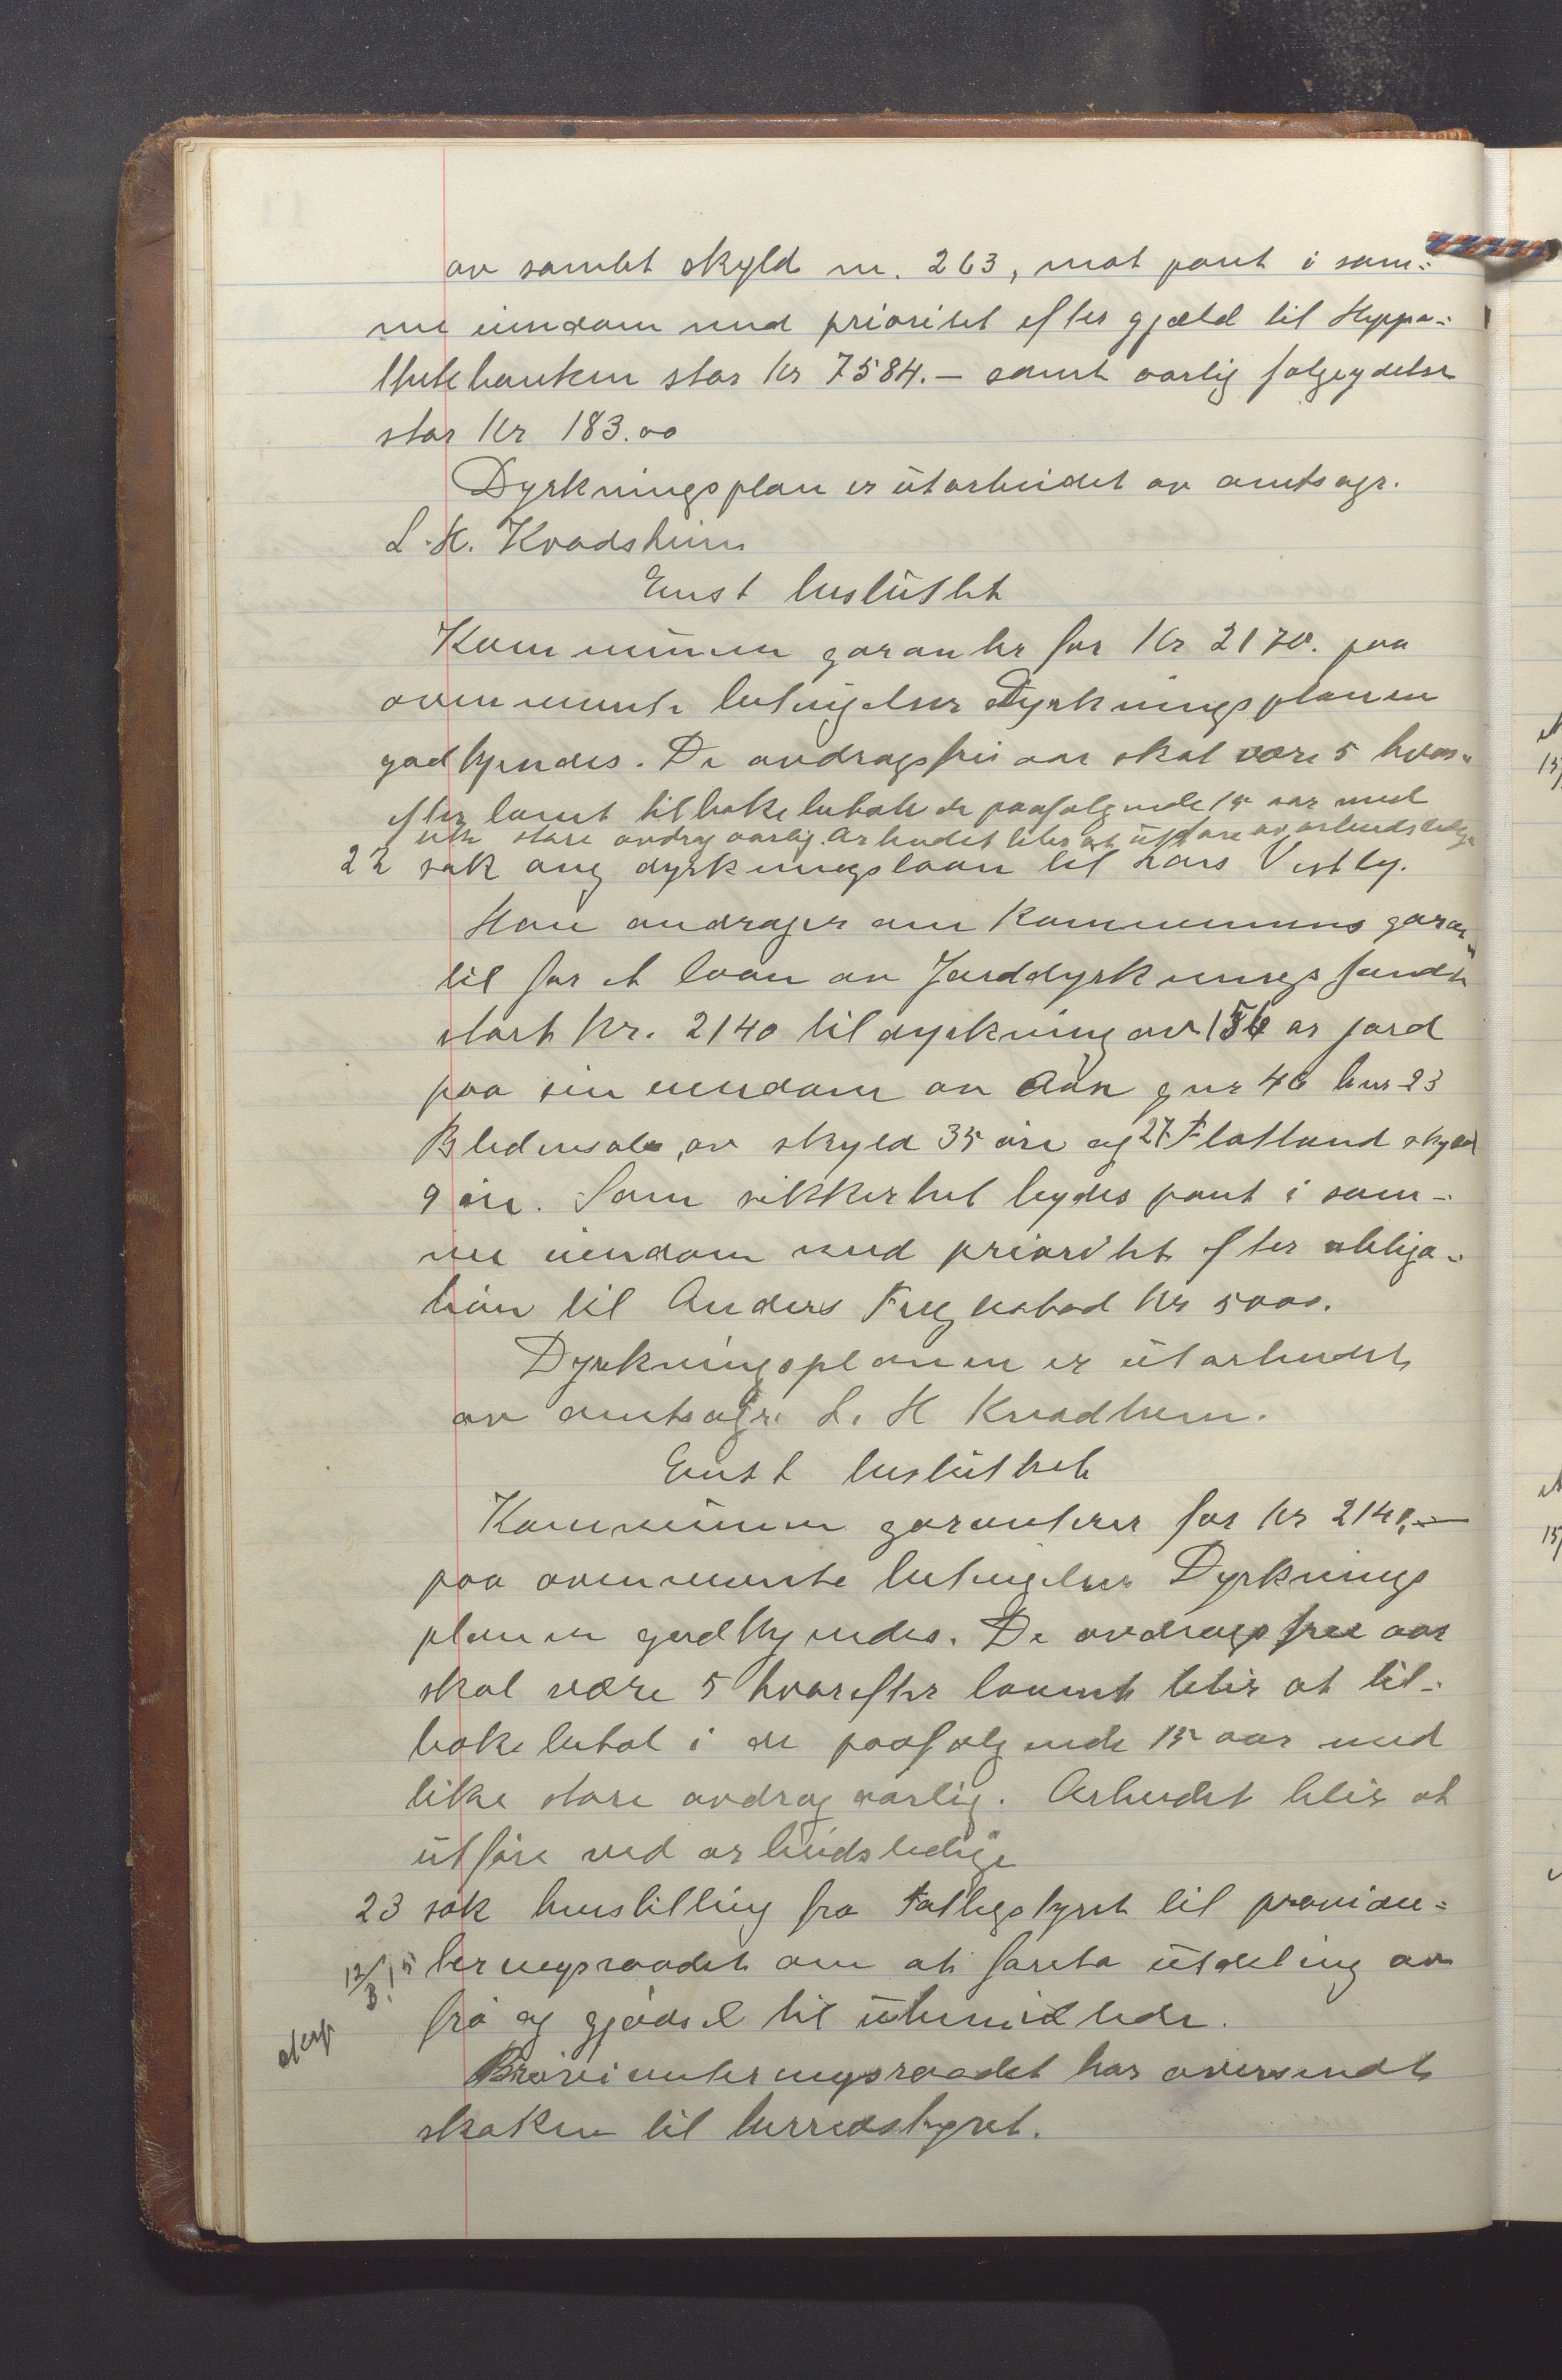 av samlet skyld m. 263, mot pant i sam-
me eiendom med prioritet efter gjæld til Hyppo-
thekbanken stor kr 7584.- samt aarlig følgeydelse
stor kr 183.00
Dyrkningsplan er utarbeidet av amtsagr.
L. H. Kvadsheim
Enst besluttet
Kommunen garanter for kr 2170. paa
ovennevnte betingelser Dyrkningsplanen
godkjendes. De avdragsfrie aar skal være 5 hvor-
efter laanet tilbakebetale de paafølgende 15 aar med
like store avdrag aarlig. Arbeidet blir at utføre av arbeidsledige
22 sak ang dyrkningslaan til Lars Vestly.
Han andrager om kommunens garan-
ti for et laan av Jorddyrkningsfondet
stort kr. 2140 til dyrkning av 156 ar jord
paa sin eiendom av Aan gnr 46 bnr 23
av skyld 35 øre og 27 Flatland skyld
9 øre. Som sikkerhet bydes pant i sam-
me eiendom med prioritet efter obliga-
tion til Anders kr 5000.
Dyrkningsplanen er utarbeidet
av amtsagr. L. H Kvadheim.
Enst besluttet
Kommunen garanterer for kr 2140,-
paa ovennevnte betingelser Dyrknings
planen godkjendes. De avdragsfrie aar
skal være 5 hvorefter laanet blir at til-
bakebetal i de paafølgende 15 aar med
like store avdrag aarlig. Arbeidet blir at
utføre ved arbeidsledige
23 sak henstilling fra Fattigstyret til provian-
12/3.15 teringsraadet om at foreta utdeling av
frø og gjødsel til ubemidlede.
Provianteringsraadet har oversendt
skaken til herredstyret.